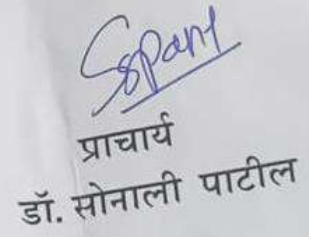 प्राचार्य
डॉ. सोनाली पाटील